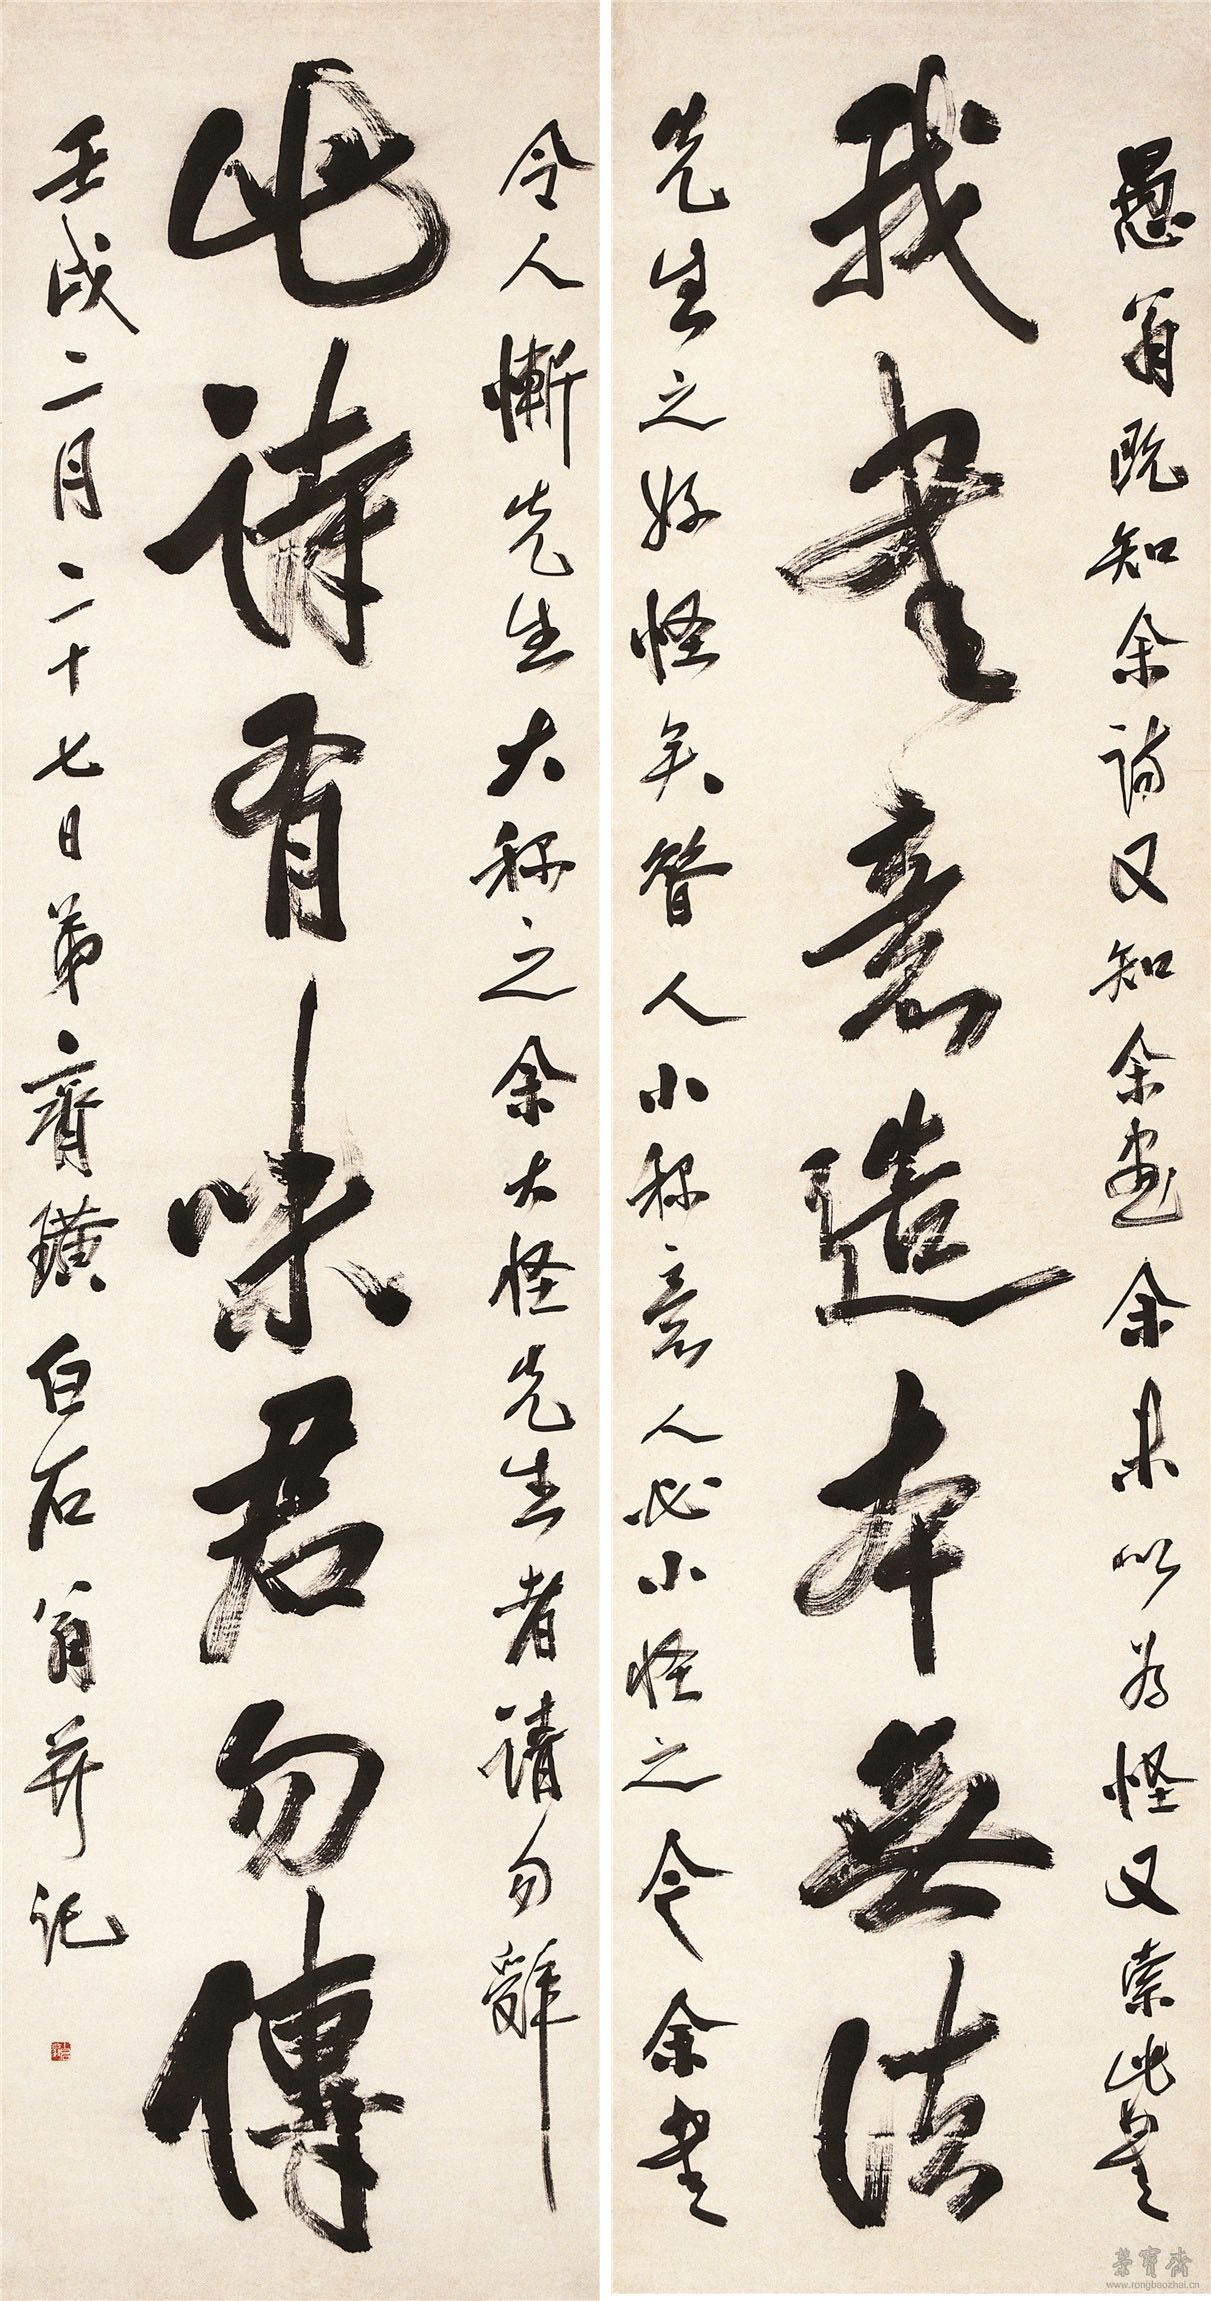 愚翁既知余詩又知余畫余未以為怪又索此是
我書意造本無法
先生之好怪矣瞀人小称意人必小怪之令余書
令人慚先生大称之余大怪先生者请勿辭
此詩有味君勿傳
壬戌二月二十七日弟齊璜白石翁并记
榮寳齋
www.rongbaozhai.cn